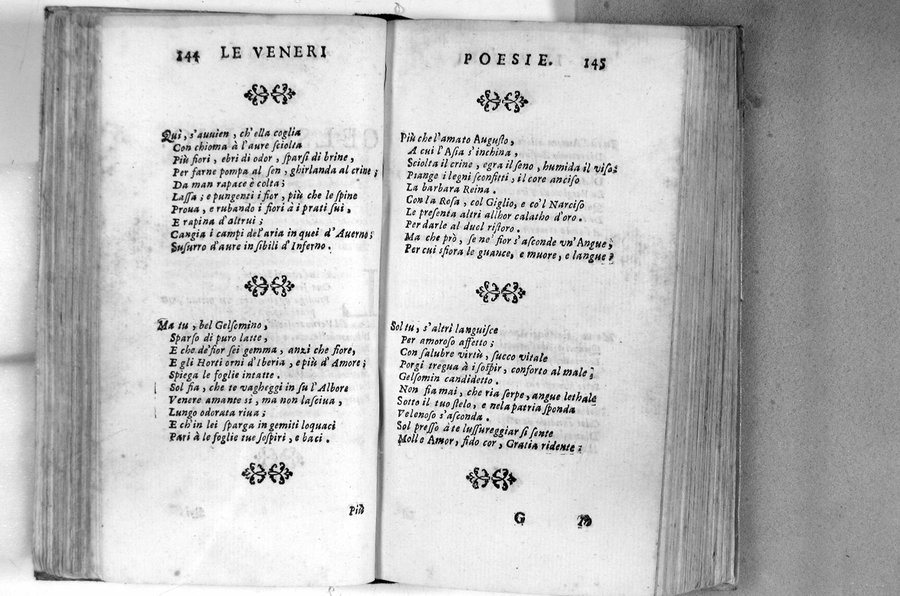 144 LE VENERI
Quì, s'auuien, ch'ella coglia
Con chioma à l'aure sciolta
Più fiori, ebri di odor, sparsi di brine,
Per farne pompa al sen, ghirlanda al crine;
Da man rapace è colta;
Lassa; e pungenti i fior, più che le spine
Proua, e rubando i fiori à i prati sui,
E rapina d'altrui;
Cangia i campi del'aria in quei d'Auerno;
Susurro d'aure in sibili d'Inferno.
Ma tu, bel Gelsomino,
Sparso di puro latte,
E che de'fior sei gemma, anzi che fiore,
E gli Horti orni d'Iberia, e più d'Amore;
Spiega le foglie intatte.
Sol fia, che te vagheggi in su l'Albore
Venere amante sì, ma non lasciua,
Lungo odorata riua;
E ch'in lei sparga in gemiti loquaci
Pari à le foglie tue sospiri, e baci.
Più
POESIE. 145
Più che l'amato Augusto,
A cui l'Asia s'inchina,
Sciolta il crine, egra il seno, humida il viso;
Piange i legni sconfitti, il core anciso
La barbara Reina.
Con la Rosa, col Giglio, e co'l Narciso
Le presenta altri allhor calatho d'oro.
Per darle al duol ristoro.
Ma che prò, se ne' fior s'asconde vn'Angue;
Per cui sfiora le guance, e muore, e langue?
Sol tu, s'altri languisce
Per amoroso affetto;
Con salubre virtù, succo vitale
Porgi tregua à i sospir, conforto al male;
Gelsomin candidetto.
Non fia mai, che ria serpe, angue lethale
Sotto il tuo stelo, e nela patria sponda
Velenoso s'asconda.
Sol presso à te lussureggiar si sente
Molle Amor, fido cor, Gratia ridente:
G